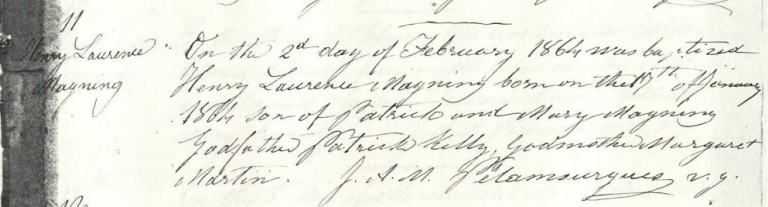 11
Henry Laurence
Magning
On the 2d day of February 1864 was baptized
Henry Laurence Magning born on the 17th of January
1864 son of Patrick and Mary Magning
Godfather Patrick Kelly, Godmother Margaret
Martin. J. A. M. Pelamourgues v. g.